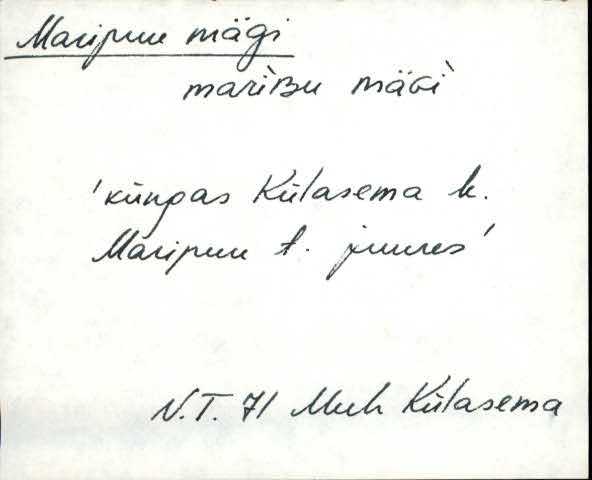 Maripuu mägi
marìʙu mäɢì
'küngas Külasema k.
Maripuu t. juures'
N.T. 71 Muh Külasema